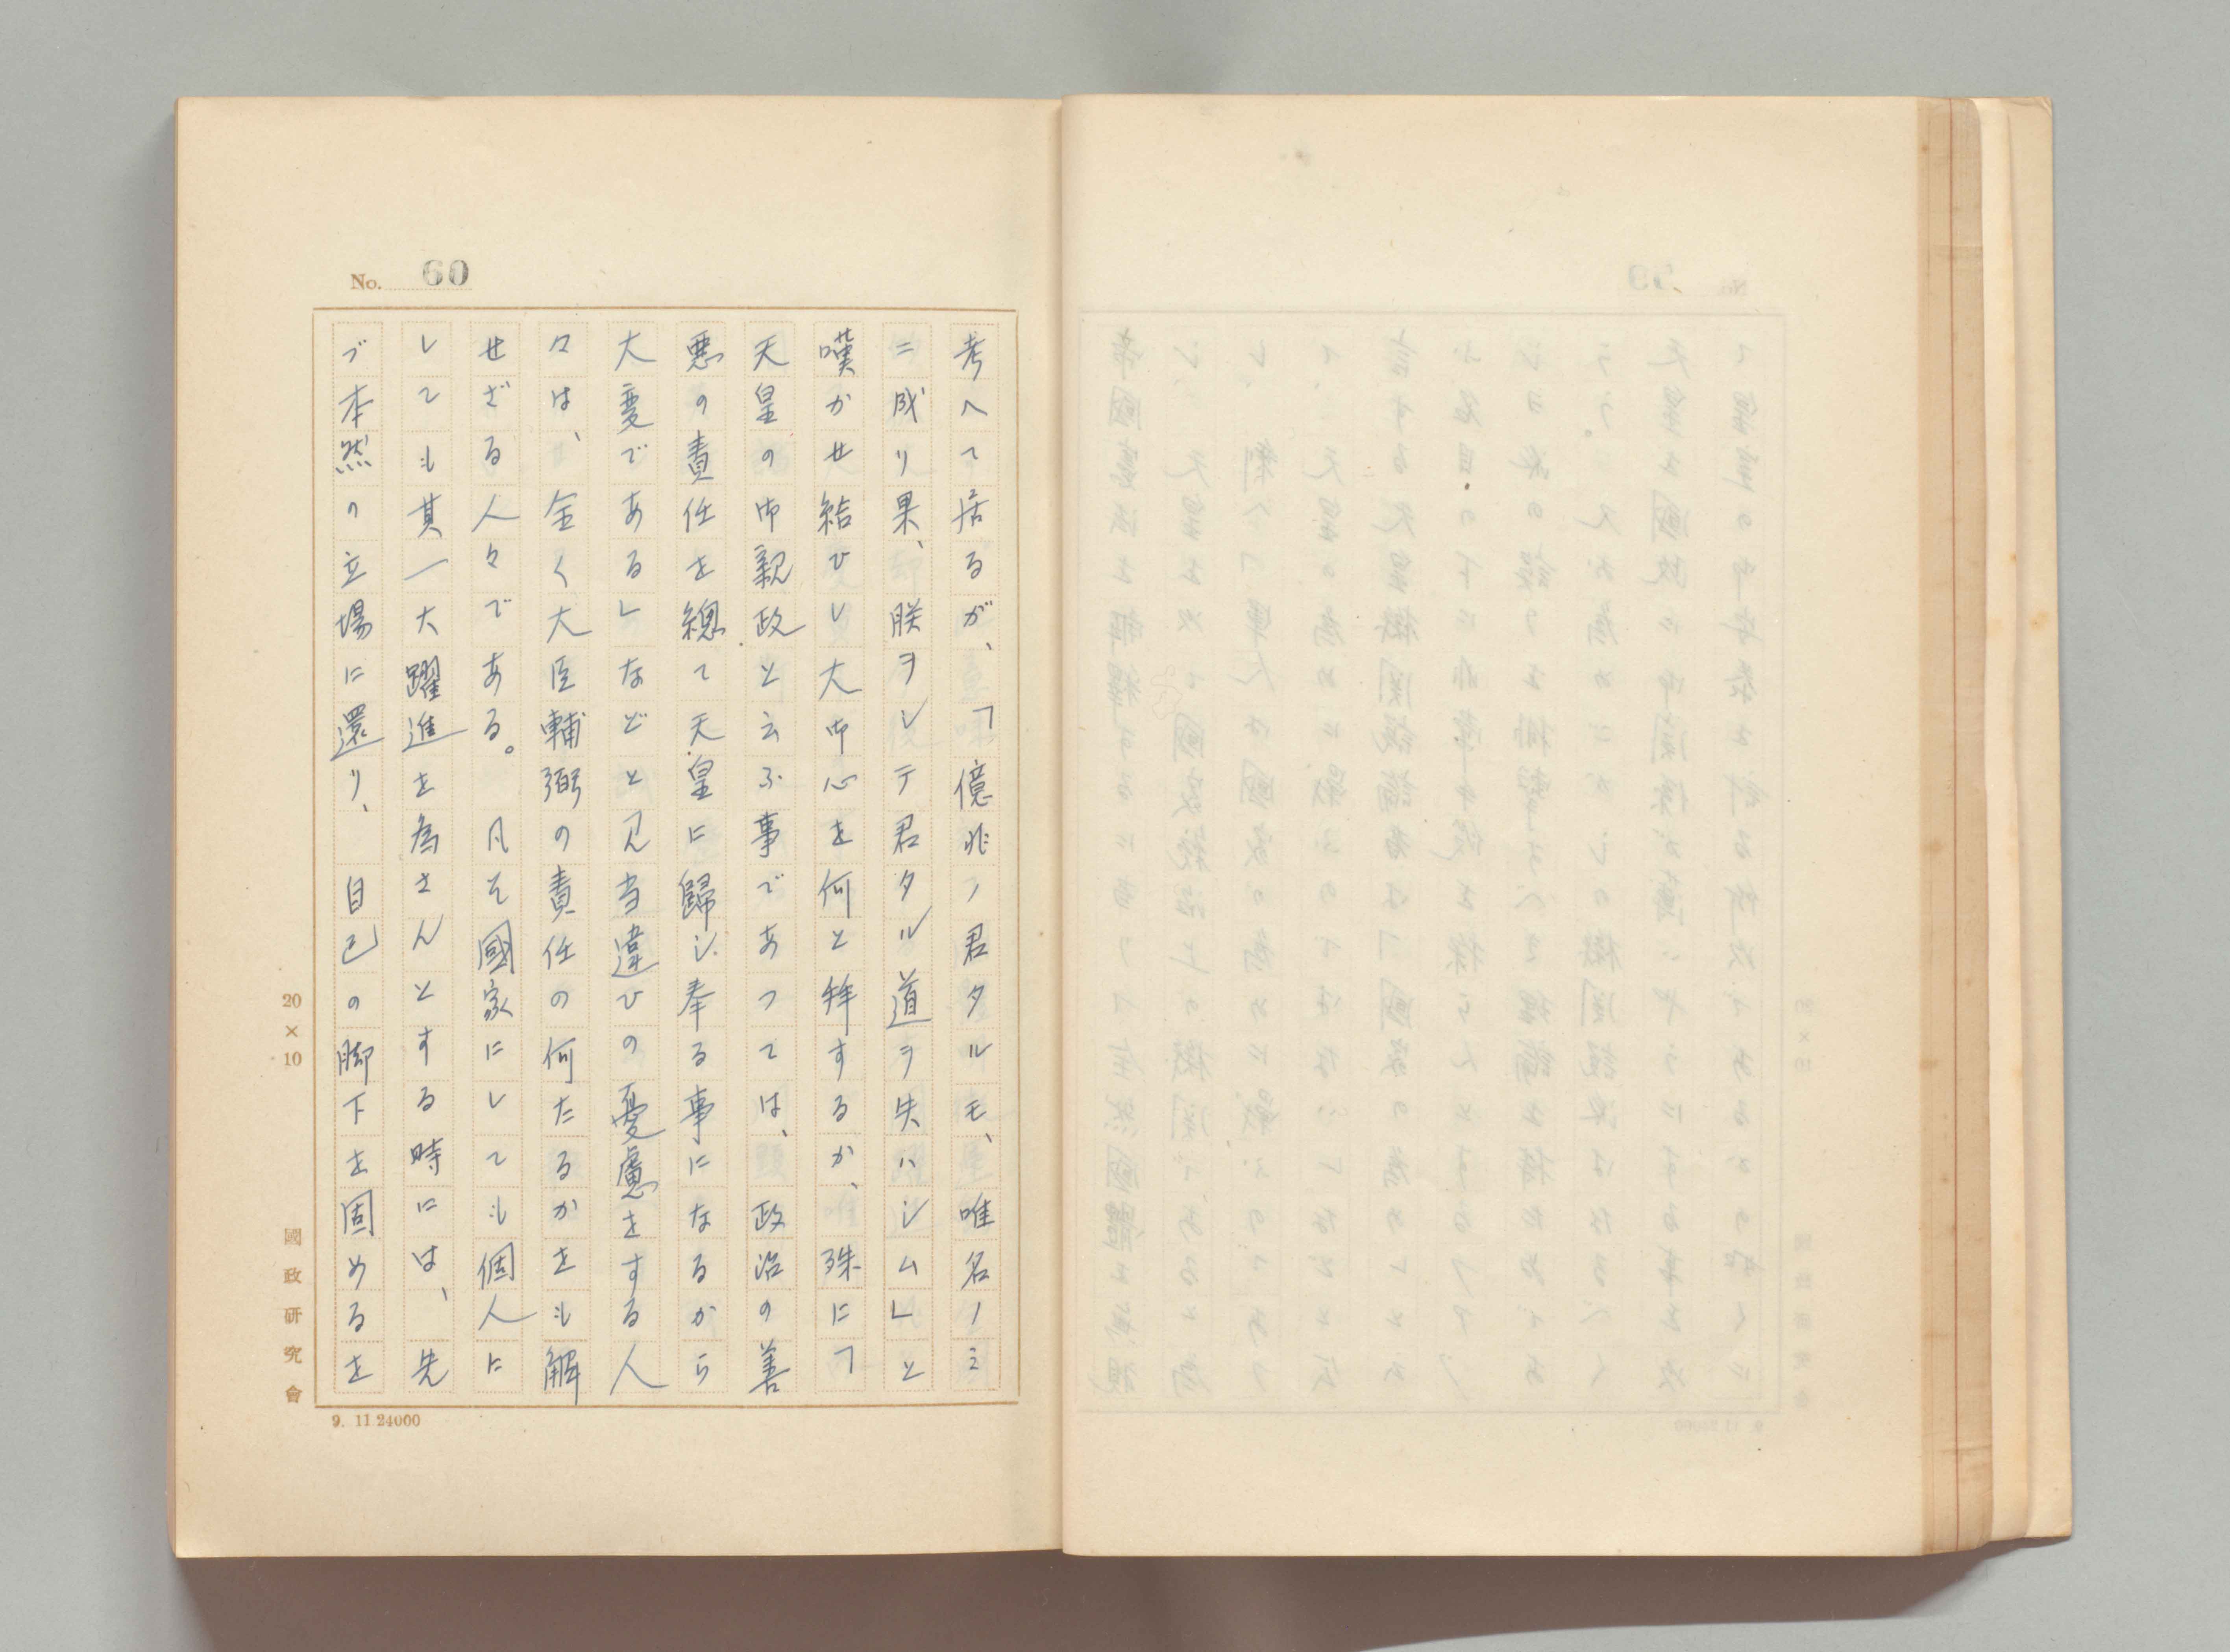 No. 60
考へて居るが、「億兆ノ君タルモ、唯名ノミ
ニ成リ果、朕ヲシテ君タル道ヲ失ハシム」と
嘆かせ給ひし大御心を何と拜するか、殊に「
天皇の御親政と云ふ事であつては、政治の善
悪の責任を總て天皇に歸し奉る事になるから
大変である」などと見当違ひの憂慮をする人
々は、全く大臣輔弼の責任の何たるかをも解
せざる人々である。凡そ國家にしても個人に
しても其一大躍進を為さんとする時には、先
づ本然の立場に還り、自己の脚下を固めるを
20×10
國政研究會
9. 11 24000